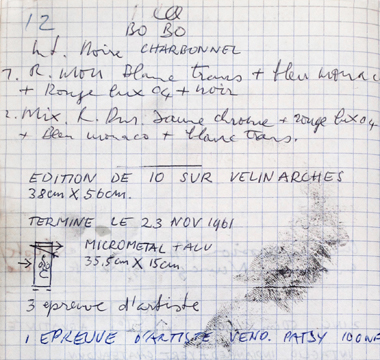 12
BO BO
Int. Noire CHARBONNEL
1. R. Mon Blanc trans + bleu monaco
+ Rouge lux 04 + noir
2. Mix. R. Jaune chrome + rouge lux 04
+ Bleu monaco + blanc trans.
EDITION DE 10 SUR VELIN ARCHES
38cm X 56cm.
TERMINE LE 23 NOV 1961
MICROMETAL + ALU
35.5cm X 15cm
3 epreuve d'artiste
1 EPREUVE D'ARTISTE VEND. PATSY